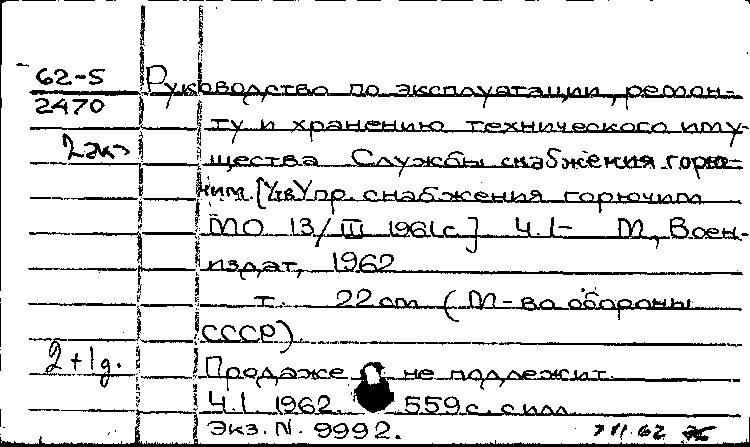 62-5
2470
Руководство по эксплуатации, ремон-
ту и хранению технического иму-
2 эк
щества Службы снабжения горю-
чим. [Утв Упр. снабжения горючим
МО 13/III 1961г.] Ч. 1- М., Воен-
издат, 1962
т. 22 см (М-во обороны
СССР).
2+1д.
Продаже не подлежит.
Ч. 1 1962. 559 с. с илл.
Экз. N. 9992.
7 VII 62